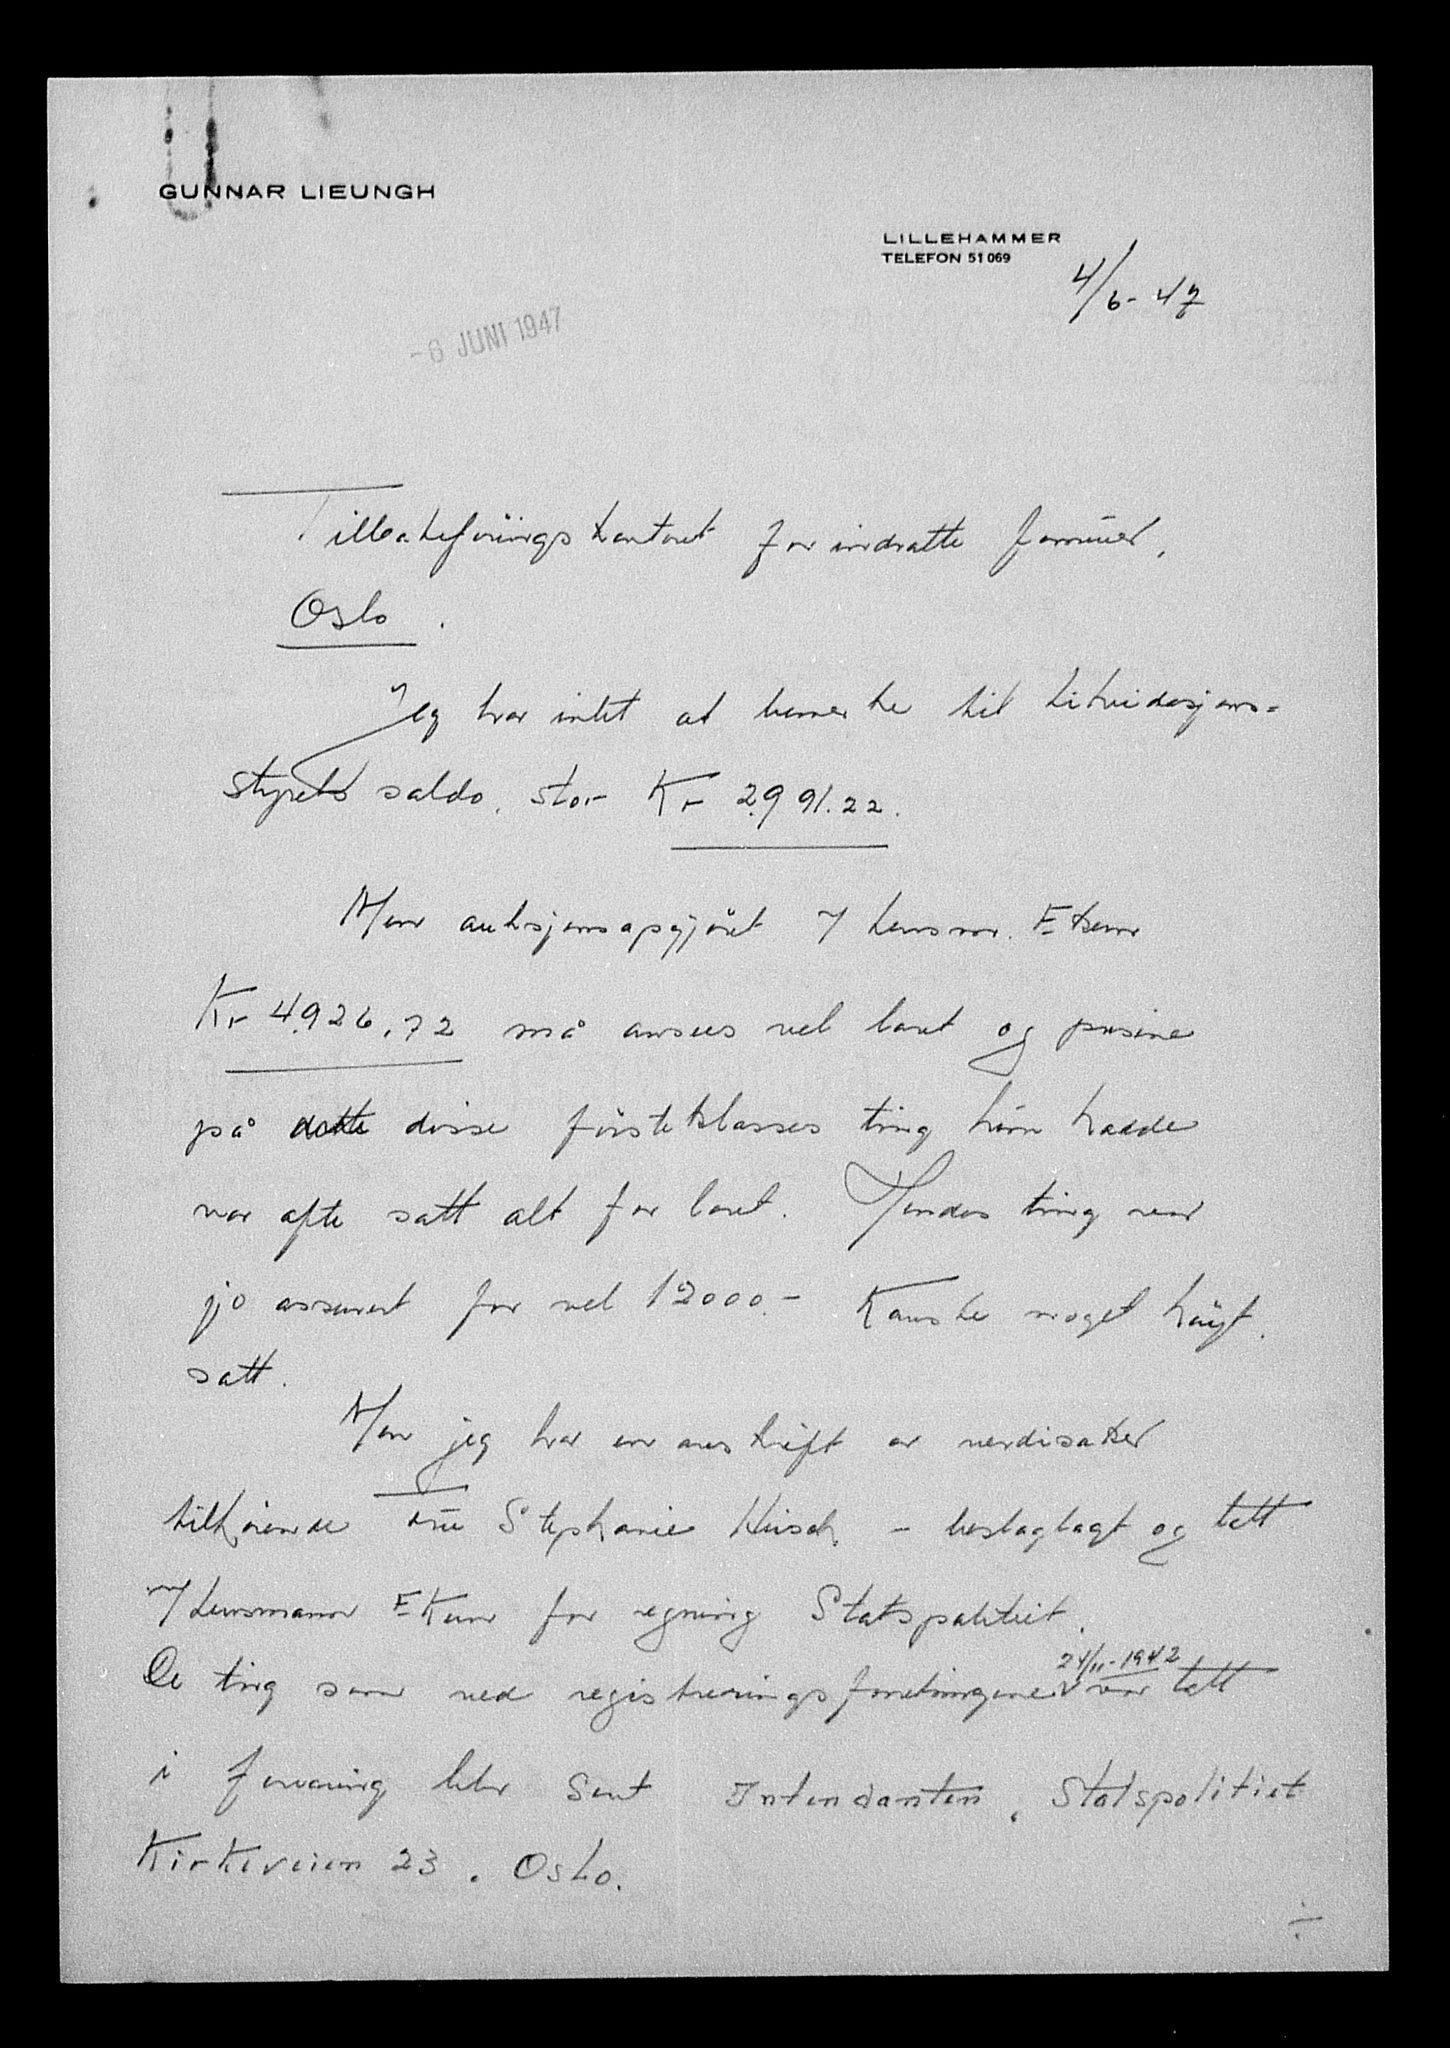 GUNNAR LIEUNGH
LILLEHAMMER
TELEFON 51 069
4/6-47
-6 JUNI 1947
Tilbakeføringskontoret for inndratte formuer,
Oslo.
Jeg har intet at bemerke til Likvidasjons-
styrets saldo, stor Kr 2991.22.
Men auksjonsopgjöret v/ Lensm. Ekern
Kr 4926,72 må ansees vel lavt og prisene
på dette disse försteklasses ting hun hadde
var ofte satt alt for lavt. Hendes ting var
jo assurert for vel 12000.- Kanske noget höyt
satt.
Men jeg har en avskrift av verdisaker
tilhörende fru Stephanie Hirsch - beslaglagt og tatt
v/ Lensmann Ekern for regning Statspolitiet.
De ting som ved registreringsforretningene 24/11-1942 var tatt
i forvaring blev sent Intendanten, Statspolitiet
Kirkeveien 23. Oslo.